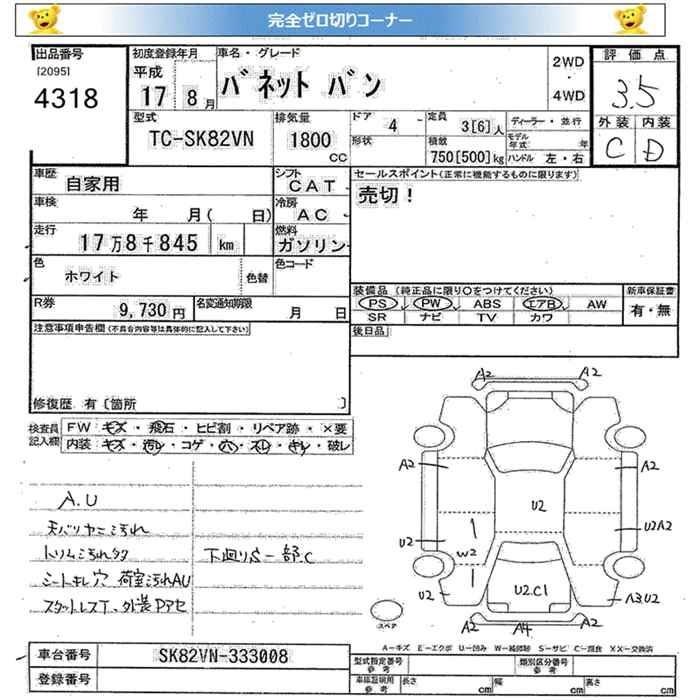 完全ゼロ切りコーナー
出品番号
[2095]
4318
初度登録年月
平成
17年8月
車名・グレード
バネット バン
2WD
・
4WD
評価点
3.5
外装 内装
C D
型式
TC-SK82VN
排気量
1800
cc
ドア
4
形状
定員
3[6]人
積載
750[500]kg
ディーラー・並行
モデル年式 年
ハンドル 左・右
車歴
自家用
シフト
CAT
セールスポイント(正常に機能するものに限ります)
売切!
車検
年 月( 日)
冷房
AC
走行
17万8千845 km
燃料
ガソリン
色
ホワイト
色替
色コード
R券
9,730円
名変通知期限
月 日
装備品 (純正品に限り○をつけてください)
PS PW ABS エアB AW
SR ナビ TV カワ
新車保証書
有・無
後日品
注意事項申告欄(不具合内容等は具体的に記入して下さい)
修復歴 有〔箇所 〕
検査員記入欄
FW キズ・飛石・ヒビ割・リペア跡・×要
内装 キズ・汚レ・コゲ・穴・スレ・キレ・破レ
A.U
天バリヤニ汚れ
トリム汚れ多タ
下廻りS一部.C
シートキレ穴 荷室汚れAU
スタットレスT、外装Pアセ
A2 A2
A2 A2
U2
U2 U2A2
W2
U2 U2C1 A3.U2
スペア
A2 A4 A2
A－キズ E－エクボ U－凹み W－補修跡 S－サビ C－腐食 XX－交換済
車台番号
SK82VN-333008
登録番号
型式指定番号
参考
類別区分番号
車庫証明用
参考
長さ cm 幅 cm 高さ cm